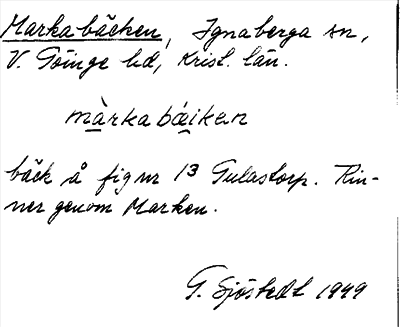 Markabäcken, Ignaberga sn,
V. Göinge hd, Krist. län.
màrkabáiken
bäck å fig nr 13 Gulastorp. Rin-
ner genom Marken.
G. Sjöstedt 1949